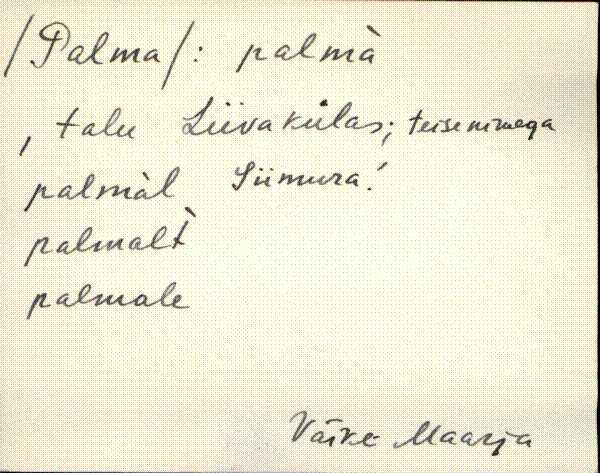 /Palma/: palmà
, talu Liivakülas; teise nimega
palmàl Siimura!
palmalt̀
palmale
Väike Maarja